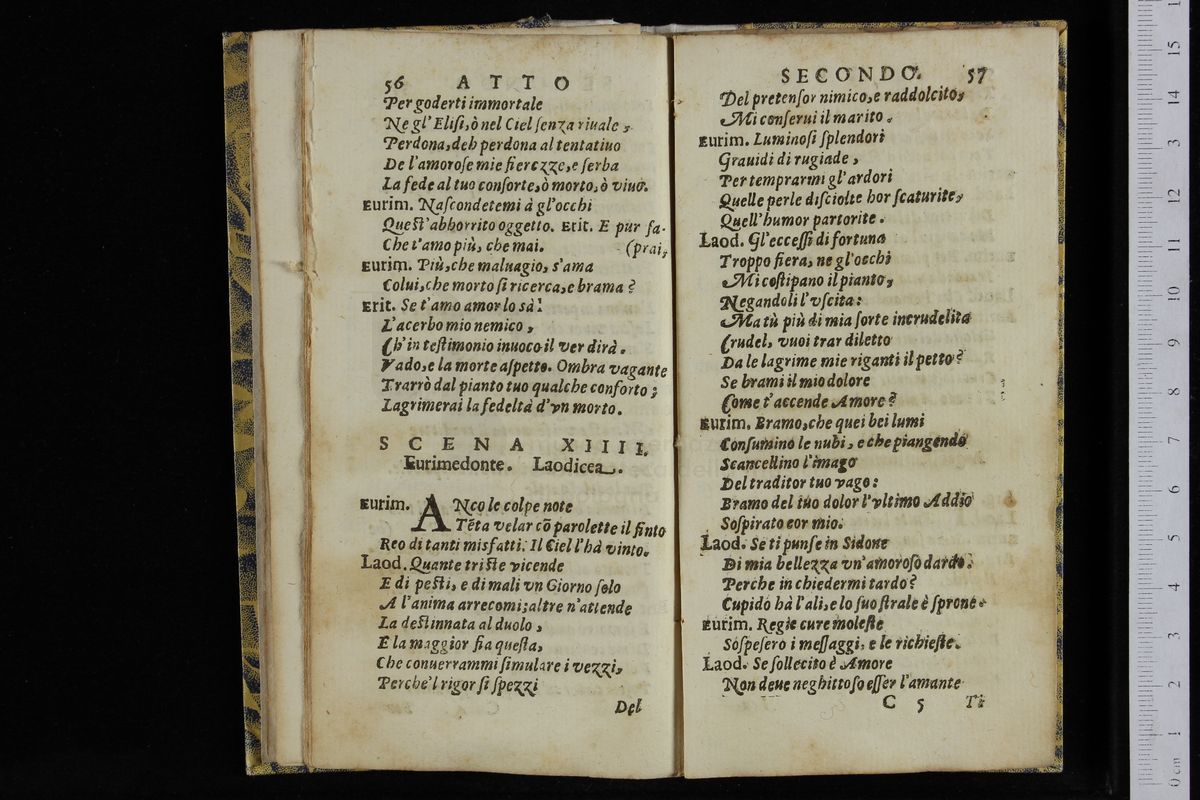 56 ATTO
Per goderti immortale
Ne gl'Elisi, ò nel Ciel senza riuale,
Perdona, deh perdona al tentatiuo
De l'amorose mie fierezze, e serba
La fede al tuo consorte, ò morto, ò viuo.
Eurim. Nascondetemi à gl'occhi
Quest'abhorrito oggetto. Erit. E pur sa-
Che t'amo più, che mai. (prai,
Eurim. Più, che maluagio, s'ama
Colui, che morto si ricerca, e brama?
Erit. Se t'amo amor lo sà!
L'acerbo mio nemico,
Ch'in testimonio inuoco il ver dirà.
Vado, e la morte aspetto. Ombra vagante
Trarrò dal pianto tuo qualche conforto;
Lagrimerai la fedeltà d'vn morto.
SCENA XIIII.
Eurimedonte. Laodicea.
Eurim. ANco le colpe note
Tēta velar cō parolette il finto
Reo di tanti misfatti. Il Ciel l'hà vinto.
Laod. Quante triste vicende
E di pesti, e di mali vn Giorno solo
A l'anima arrecomi; altre n'attende
La destinnata al duolo,
E la maggior fia questa,
Che conuerrammi simulare i vezzi,
Perche'l rigor si spezzi
Del
SECONDO. 57
Del pretensor nimico, e raddolcito,
Mi conserui il marito.
Eurim. Luminosi splendori
Grauidi di rugiade,
Per temprarmi gl'ardori
Quelle perle disciolte hor scaturite,
Quell'humor partorite.
Laod. Gl'eccessi di fortuna
Troppo fiera, ne gl'occhi
Mi costipano il pianto,
Negandoli l'vscita:
Ma tù più di mia sorte incrudelita
Crudel, vuoi trar diletto
Da le lagrime mie riganti il petto?
Se brami il mio dolore
Come t'accende Amore?
Eurim. Bramo, che quei bei lumi
Consumino le nubi, e che piangendo
Scancellino l'imago
Del traditor tuo vago:
Bramo del tuo dolor l'vltimo Addio
Sospirato cor mio.
Laod. Se ti punse in Sidone
Di mia bellezza vn'amoroso dardo.
Perche in chiedermi tardo?
Cupido hà l'ali, e lo suo strale è sprone.
Eurim. Regie cure moleste
Sospesero i messaggi, e le richieste.
Laod. Se sollecito è Amore
Non deue neghittoso esser l'amante
C 5 Ti